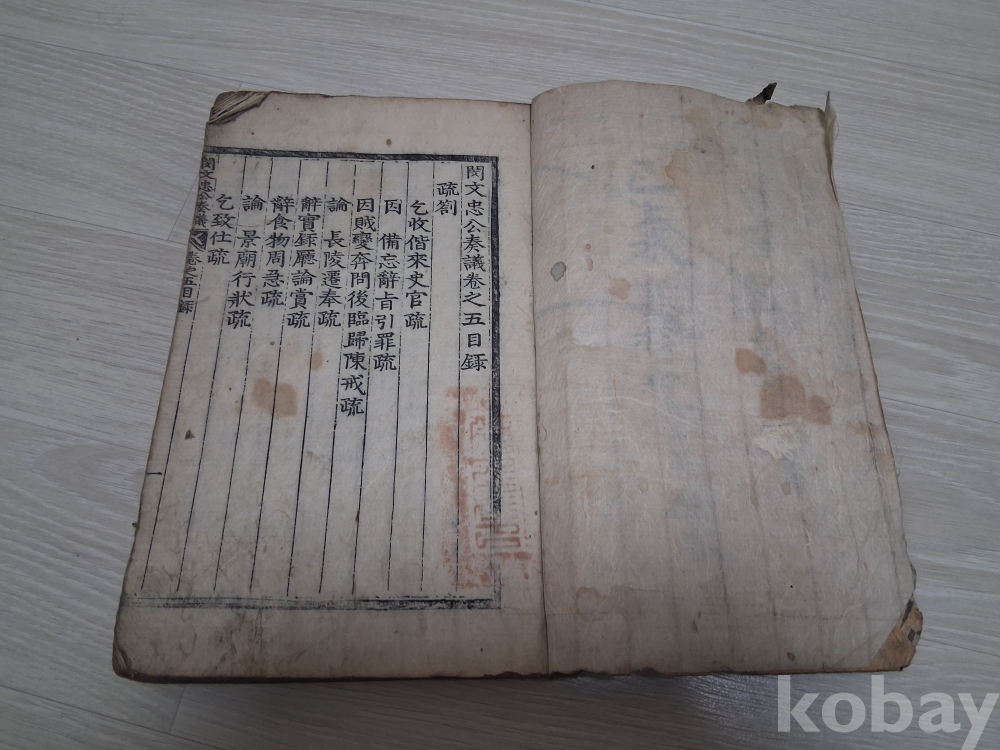 閔文忠公奏議卷之五目録
疏劄
乞收偕來史官疏
因 備忘辭旨引罪疏
因賊變奔問後臨歸陳戒疏
論 長陵遷奉疏
辭實録廳論賞疏
辭食物周急疏
論 景廟行狀疏
乞致仕疏
閔文忠公奏議 卷之五目録
kobay